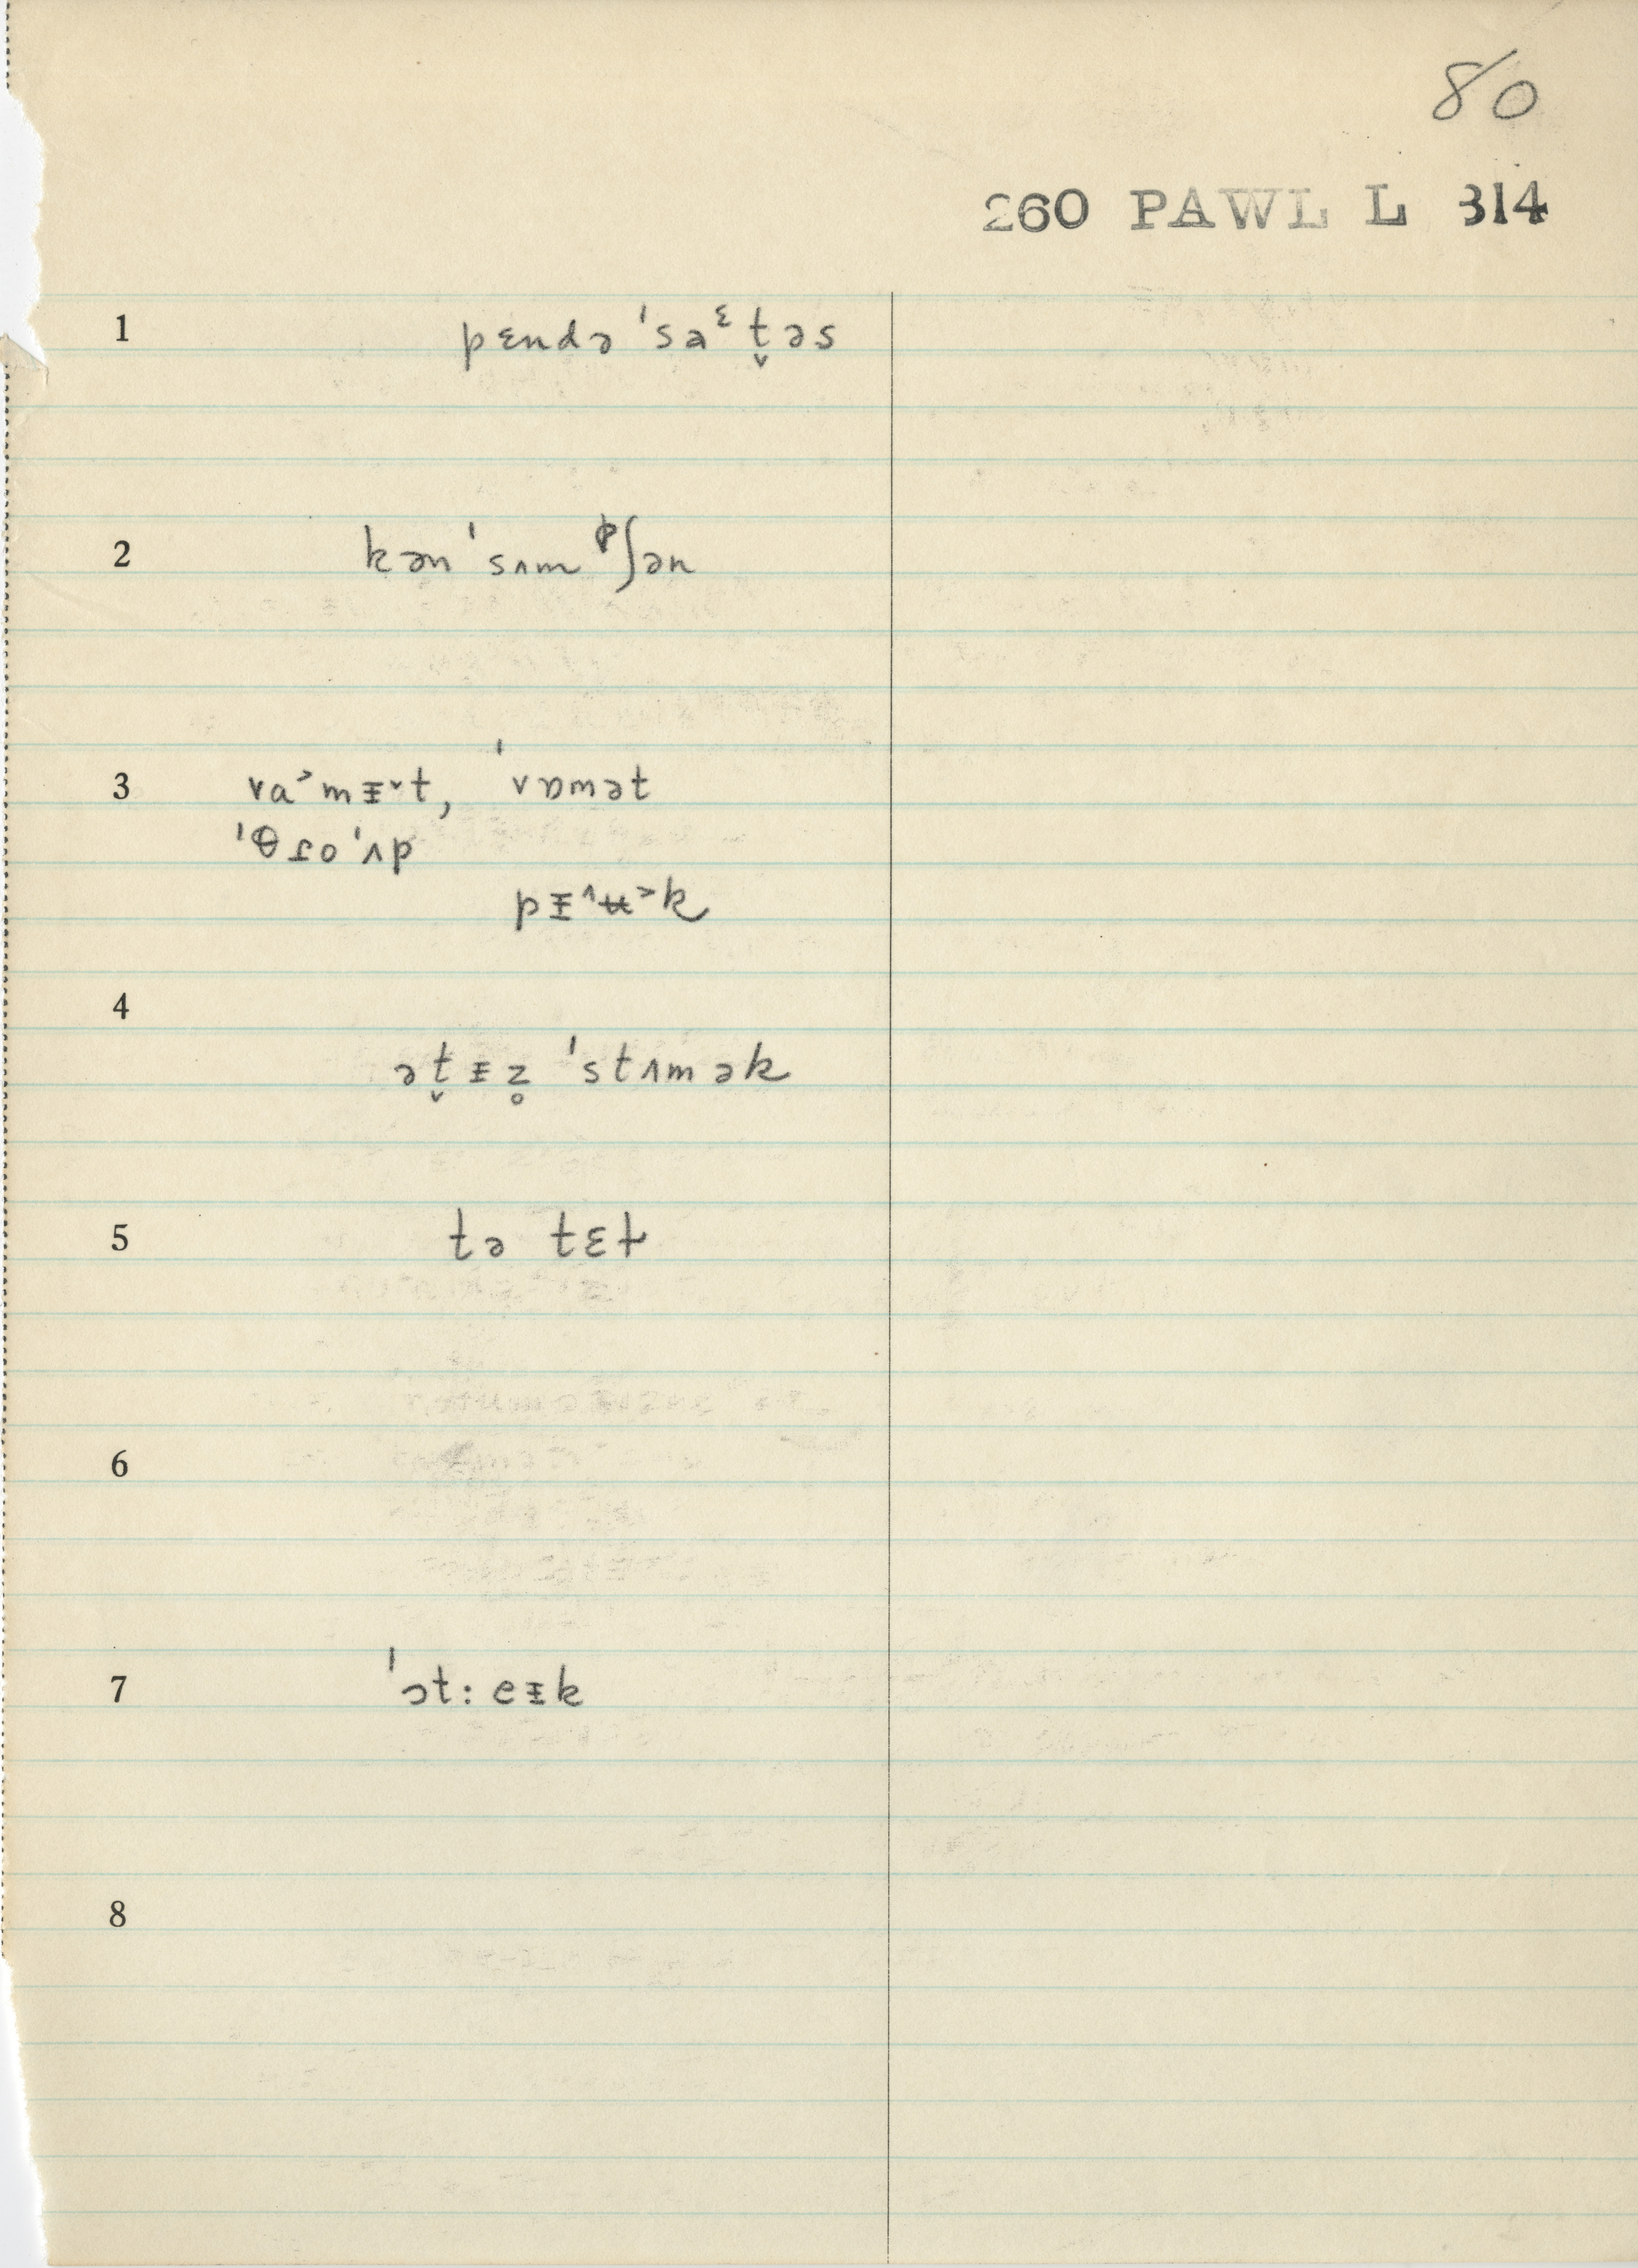 80
260 PAWL L 314
1 pɛndə ˈsaᵋt̬əs
2 kən ˈsʌmᵖʃən
3 va˃mᵻ˅t, ˈvɒmət
ˈθɾoˈʌp
pᵻ˄ʉ˃k
4
ət̬ᵻz̥ ˈstʌmək
5 tə tɛt
6
7 ˈɔt:eᵻk
8